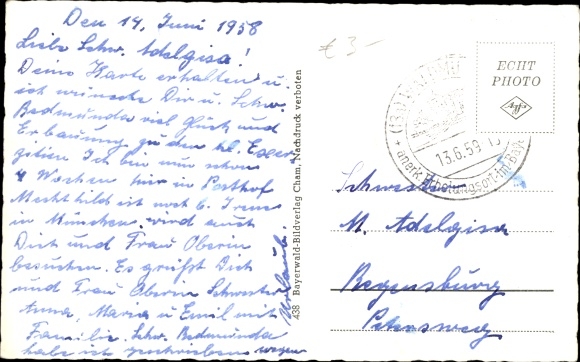 Den 14. Juni 1958
Liebe Schw. Adelgisa!
Deine Karte erhalten u.
ich wünsche Dir u. Schw.
Bedmunda viel Glück und
Erbauung zu den hl. Exerz-
itien Ich bin nun schon
4 Wochen hier in Posthof
Mechthild ist noch b. Irene
in München, wird auch
Dich und Frau Oberin
besuchen. Es grüßt Dich
und Frau Oberin Schwester
Anna, Maria u Emil mit
Familie. Schw. Bedmunda
habe ich geschrieben wegen
Urlaub.
438 Bayerwald-Bildverlag Cham, Nachdruck verboten
€ 3-
ECHT
PHOTO
Agfa
13.6.59
anerk. Erholungsort im Bay.
Schwester
M. Adelgisa
Regensburg
Petersweg